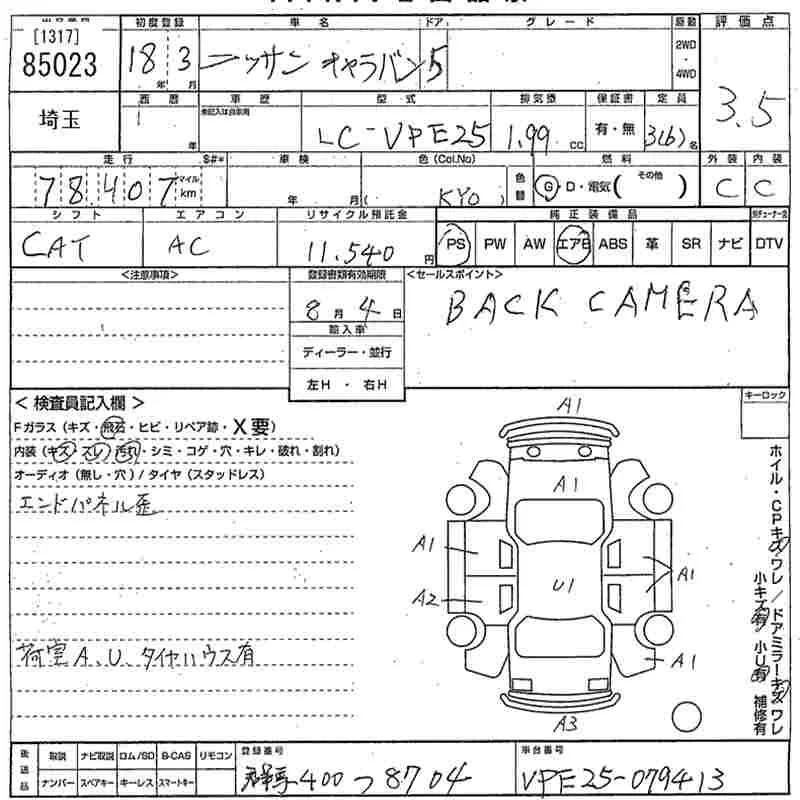 [1317]
85023
初度登録
18年 3月
車名
ニッサン キャラバン
ドア
5
グレード
原動
2WD
・
4WD
評価点
3.5
埼玉
西暦
年
車歴
未記入は自家用
型式
LC-VPE25
排気量
1.99 cc
保証書
有・無
定員
3(6)名
走行
78,407
マイル
km
S#*
車検
年 月
色 (Col.No)
( KY0 )
色替
燃料
G・D・電気( その他 )
外装
C
内装
C
シフト
CAT
エアコン
AC
リサイクル預託金
11.540円
純正装備品
PS PW AW エアB ABS 革 SR ナビ
DTV
<注意事項>
登録書類有効期限
8月4日
輸入車
ディーラー・並行
左H ・ 右H
<セールスポイント>
BACK CAMERA
<検査員記入欄>
Fガラス (キズ・飛石・ヒビ・リペア跡・X要)
内装 (キズ・スレ・汚れ・シミ・コゲ・穴・キレ・破れ・割れ)
オーディオ (無し・穴) / タイヤ (スタッドレス)
エンドパネル歪
荷室A.U、タイヤハウス有
キーロック
A1
A1
A1
A2
U1
A1
A1
A3
ホイル・CPキズ・ワレ/ドアミラーキズ・ワレ
小キズ有 小U有 補修有
後送品
取説 ナビ取説 ロム/SD B-CAS リモコン
ナンバー スペアキー キーレス スマートキー
登録番号
400 つ 8704
車台番号
VPE25-079413